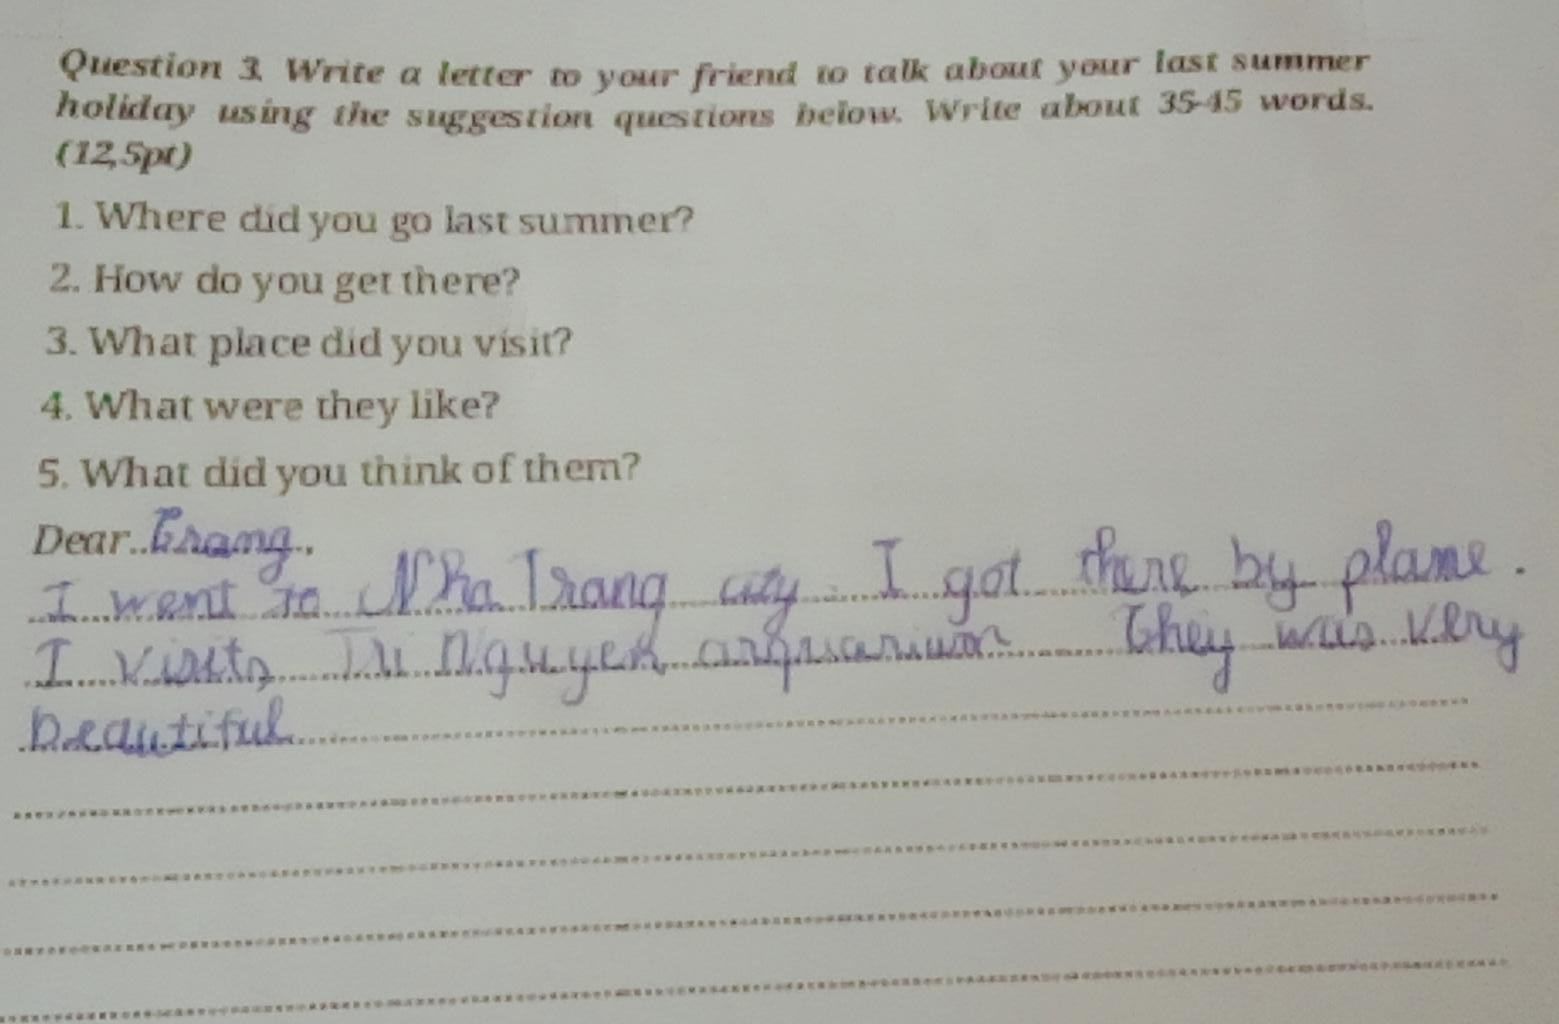 Question 3. Write a letter to your friend to talk about your last summer
holiday using the suggestion questions below. Write about 35-45 words.
(12,5pt)
1. Where did you go last summer?
2. How do you get there?
3. What place did you visit?
4. What were they like?
5. What did you think of them?
Dear..Trang..,
I went to Nha Trang city. I got there by plane.
I visits Tri Nguyen arquarium They was very
beautiful